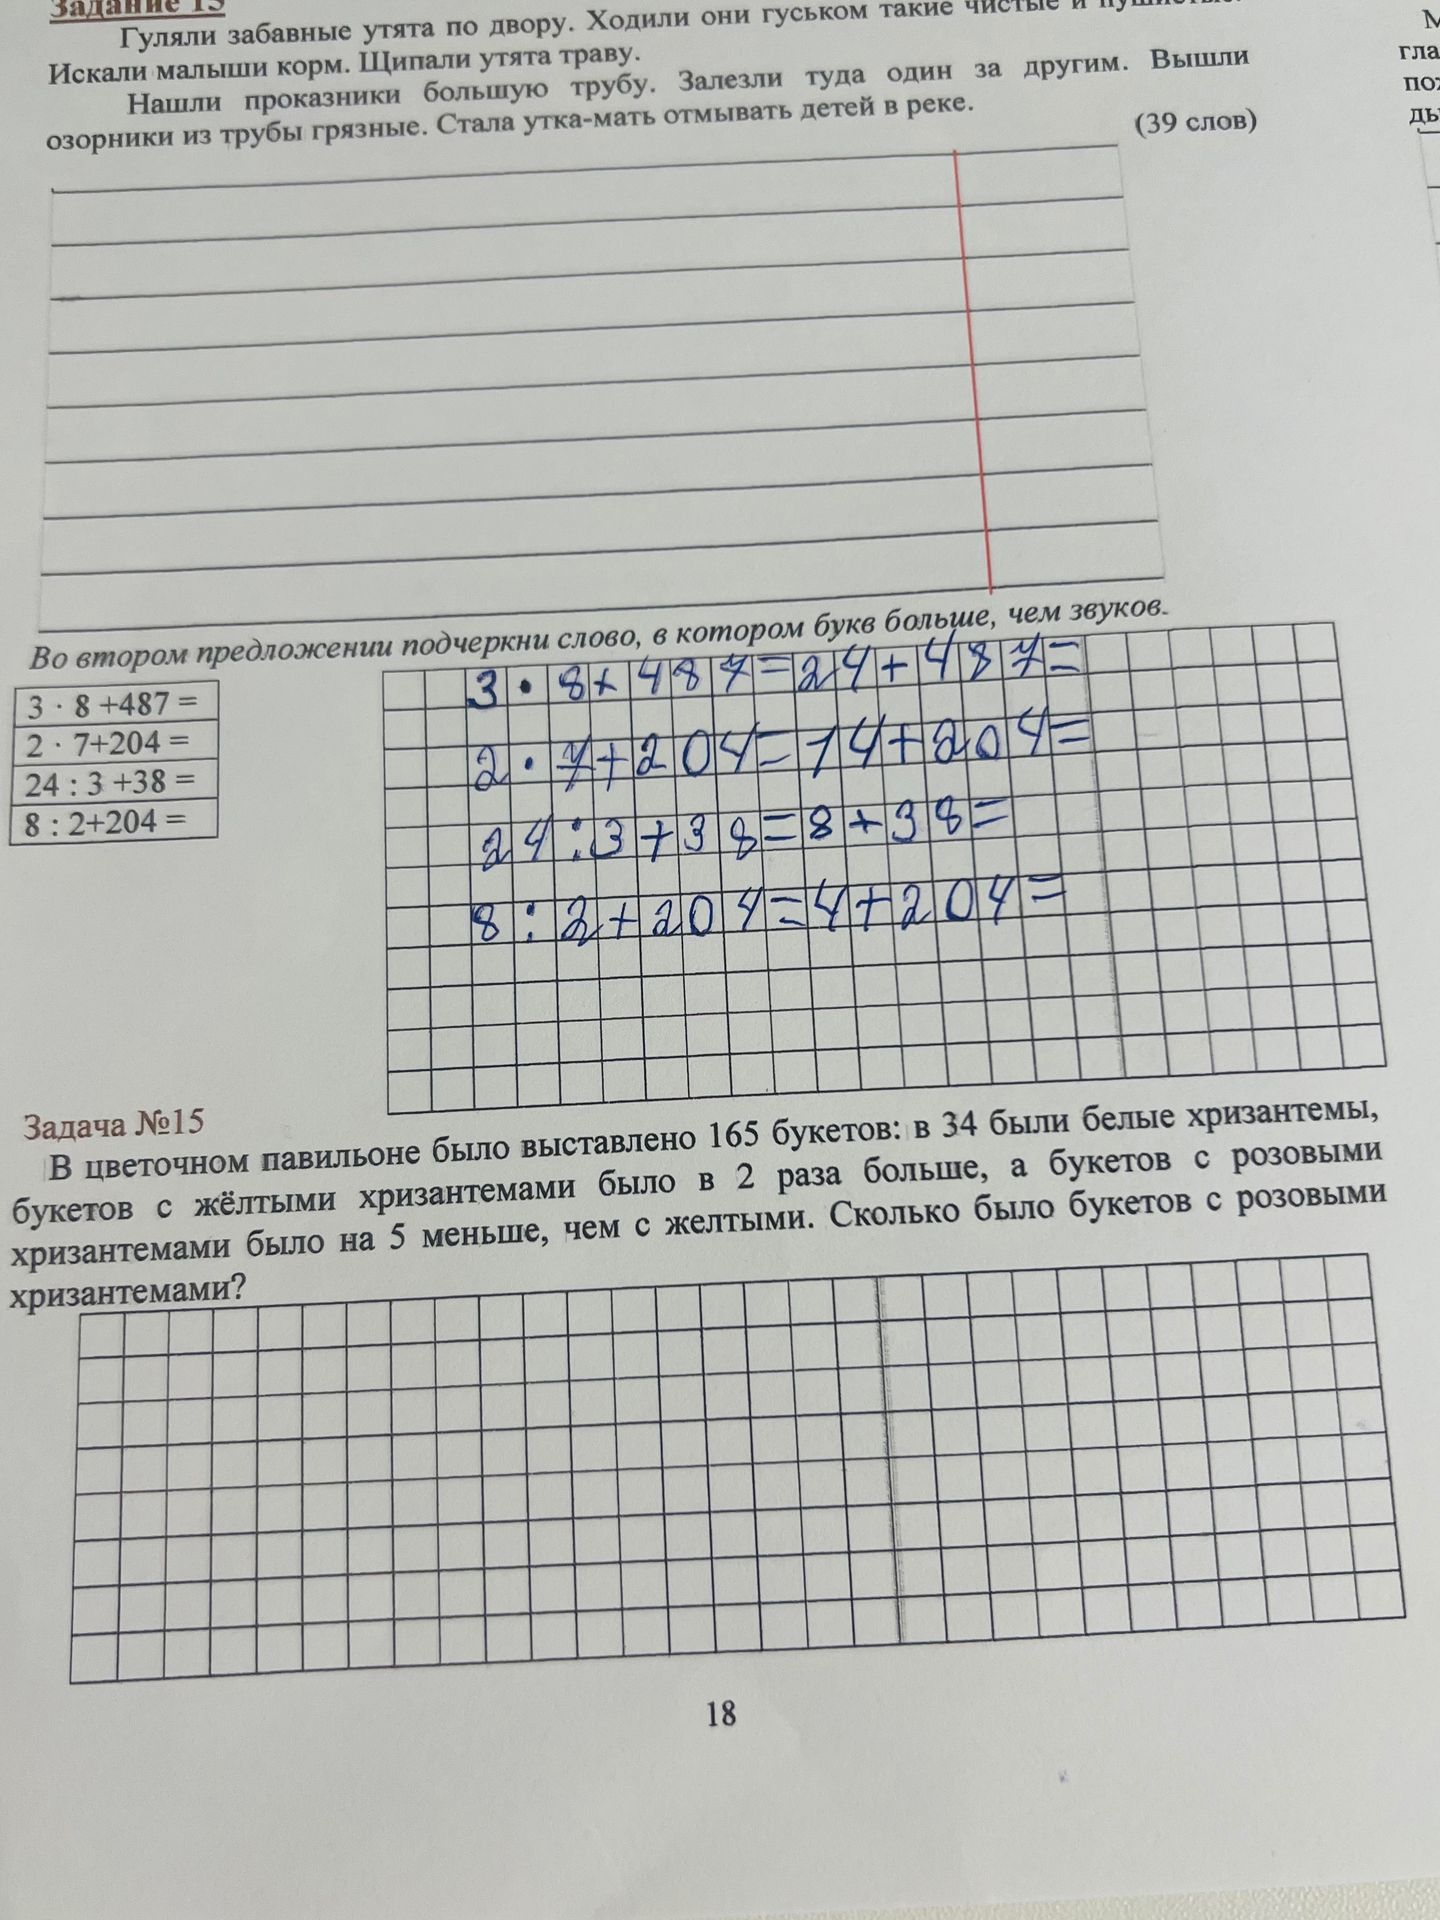 Задание 15
Гуляли забавные утята по двору. Ходили они гуськом такие чистые и пушистые.
Искали малыши корм. Щипали утята траву.
Нашли проказники большую трубу. Залезли туда один за другим. Вышли
озорники из трубы грязные. Стала утка-мать отмывать детей в реке.
(39 слов)
Во втором предложении подчеркни слово, в котором букв больше, чем звуков.
3 · 8 +487 =
2 · 7+204 =
24 : 3 +38 =
8 : 2+204 =
3 · 8 + 487 = 24 + 487 =
2 · 7 + 204 = 14 + 204 =
24 : 3 + 38 = 8 + 38 =
8 : 2 + 204 = 4 + 204 =
Задача №15
В цветочном павильоне было выставлено 165 букетов: в 34 были белые хризантемы,
букетов с жёлтыми хризантемами было в 2 раза больше, а букетов с розовыми
хризантемами было на 5 меньше, чем с желтыми. Сколько было букетов с розовыми
хризантемами?
18